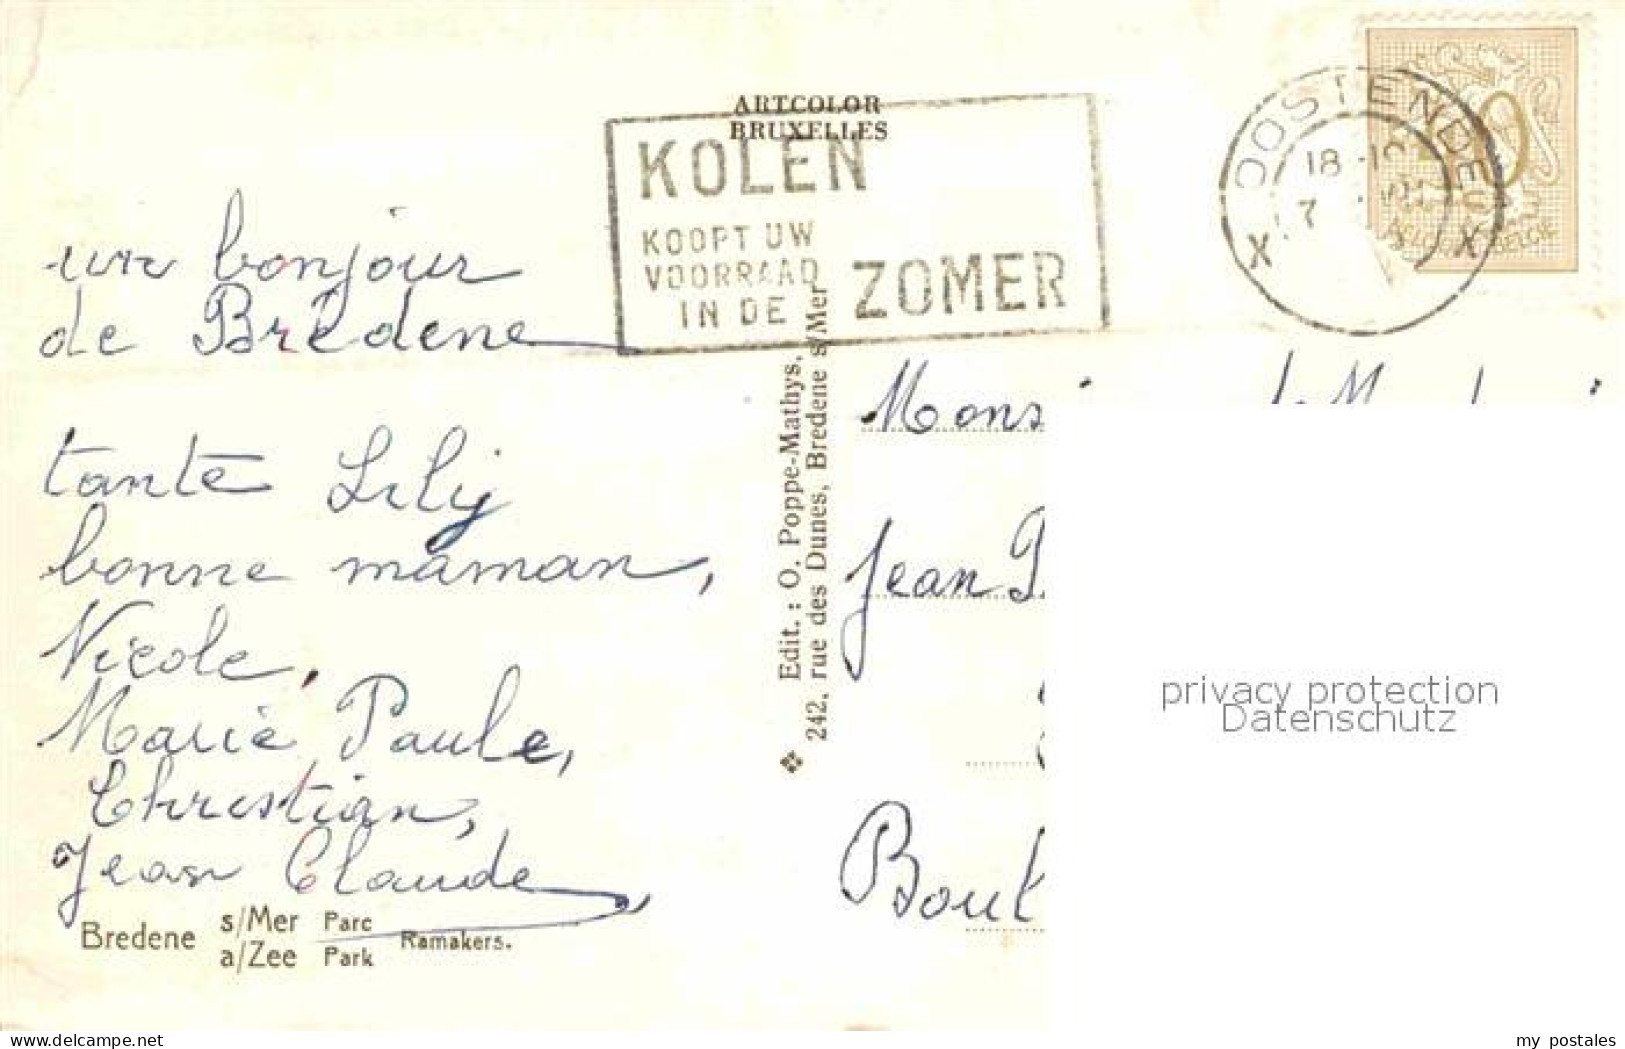 ARTCOLOR
BRUXELLES
KOLEN
KOOPT UW
VOORRAAD
IN DE
ZOMER
OOSTENDE
X X
18
7
BELGIE
un bonjour
de Bredene
tante Lily
bonne maman,
Nicole,
Marie Paule,
Christian,
Jean Claude
Bredene s/Mer Parc
a/Zee Park Ramakers.
Edit. : O. Poppe-Mathys,
242, rue des Dunes, Bredene s/Mer
Mons
Jean P
Bout
privacy protection
Datenschutz
www.ansichtskarten-center.de
my postales